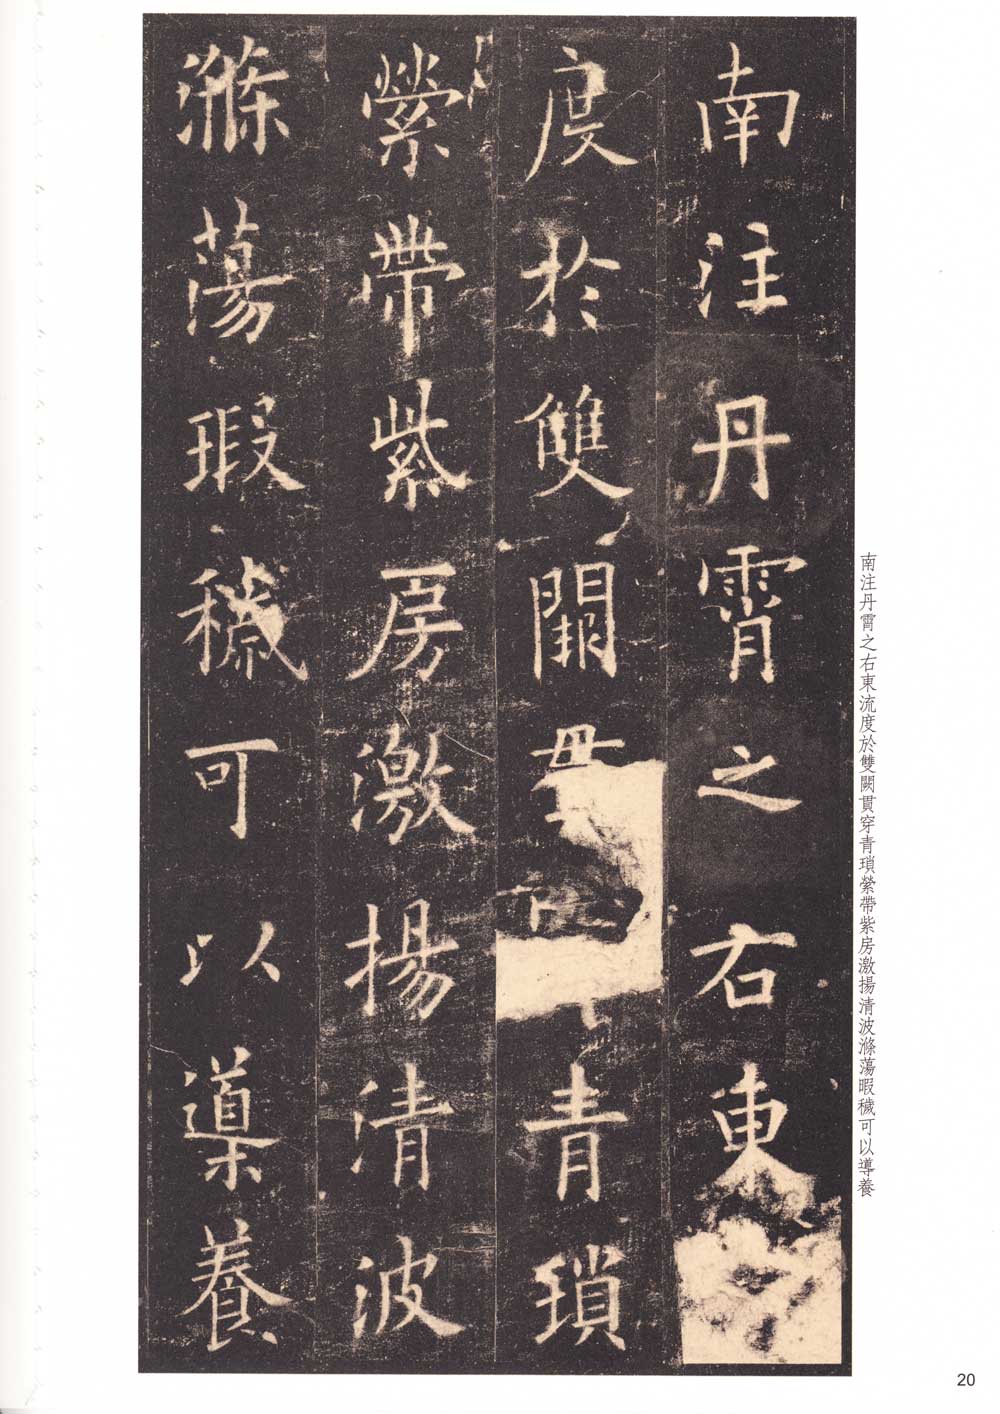 南注丹霄之右東
度於雙闕貫青瑣
縈帶紫房激揚清波
滌蕩瑕穢可以導養
南注丹霄之右東流度於雙闕貫穿青瑣縈帶紫房激揚清波滌蕩暇穢可以導養
20